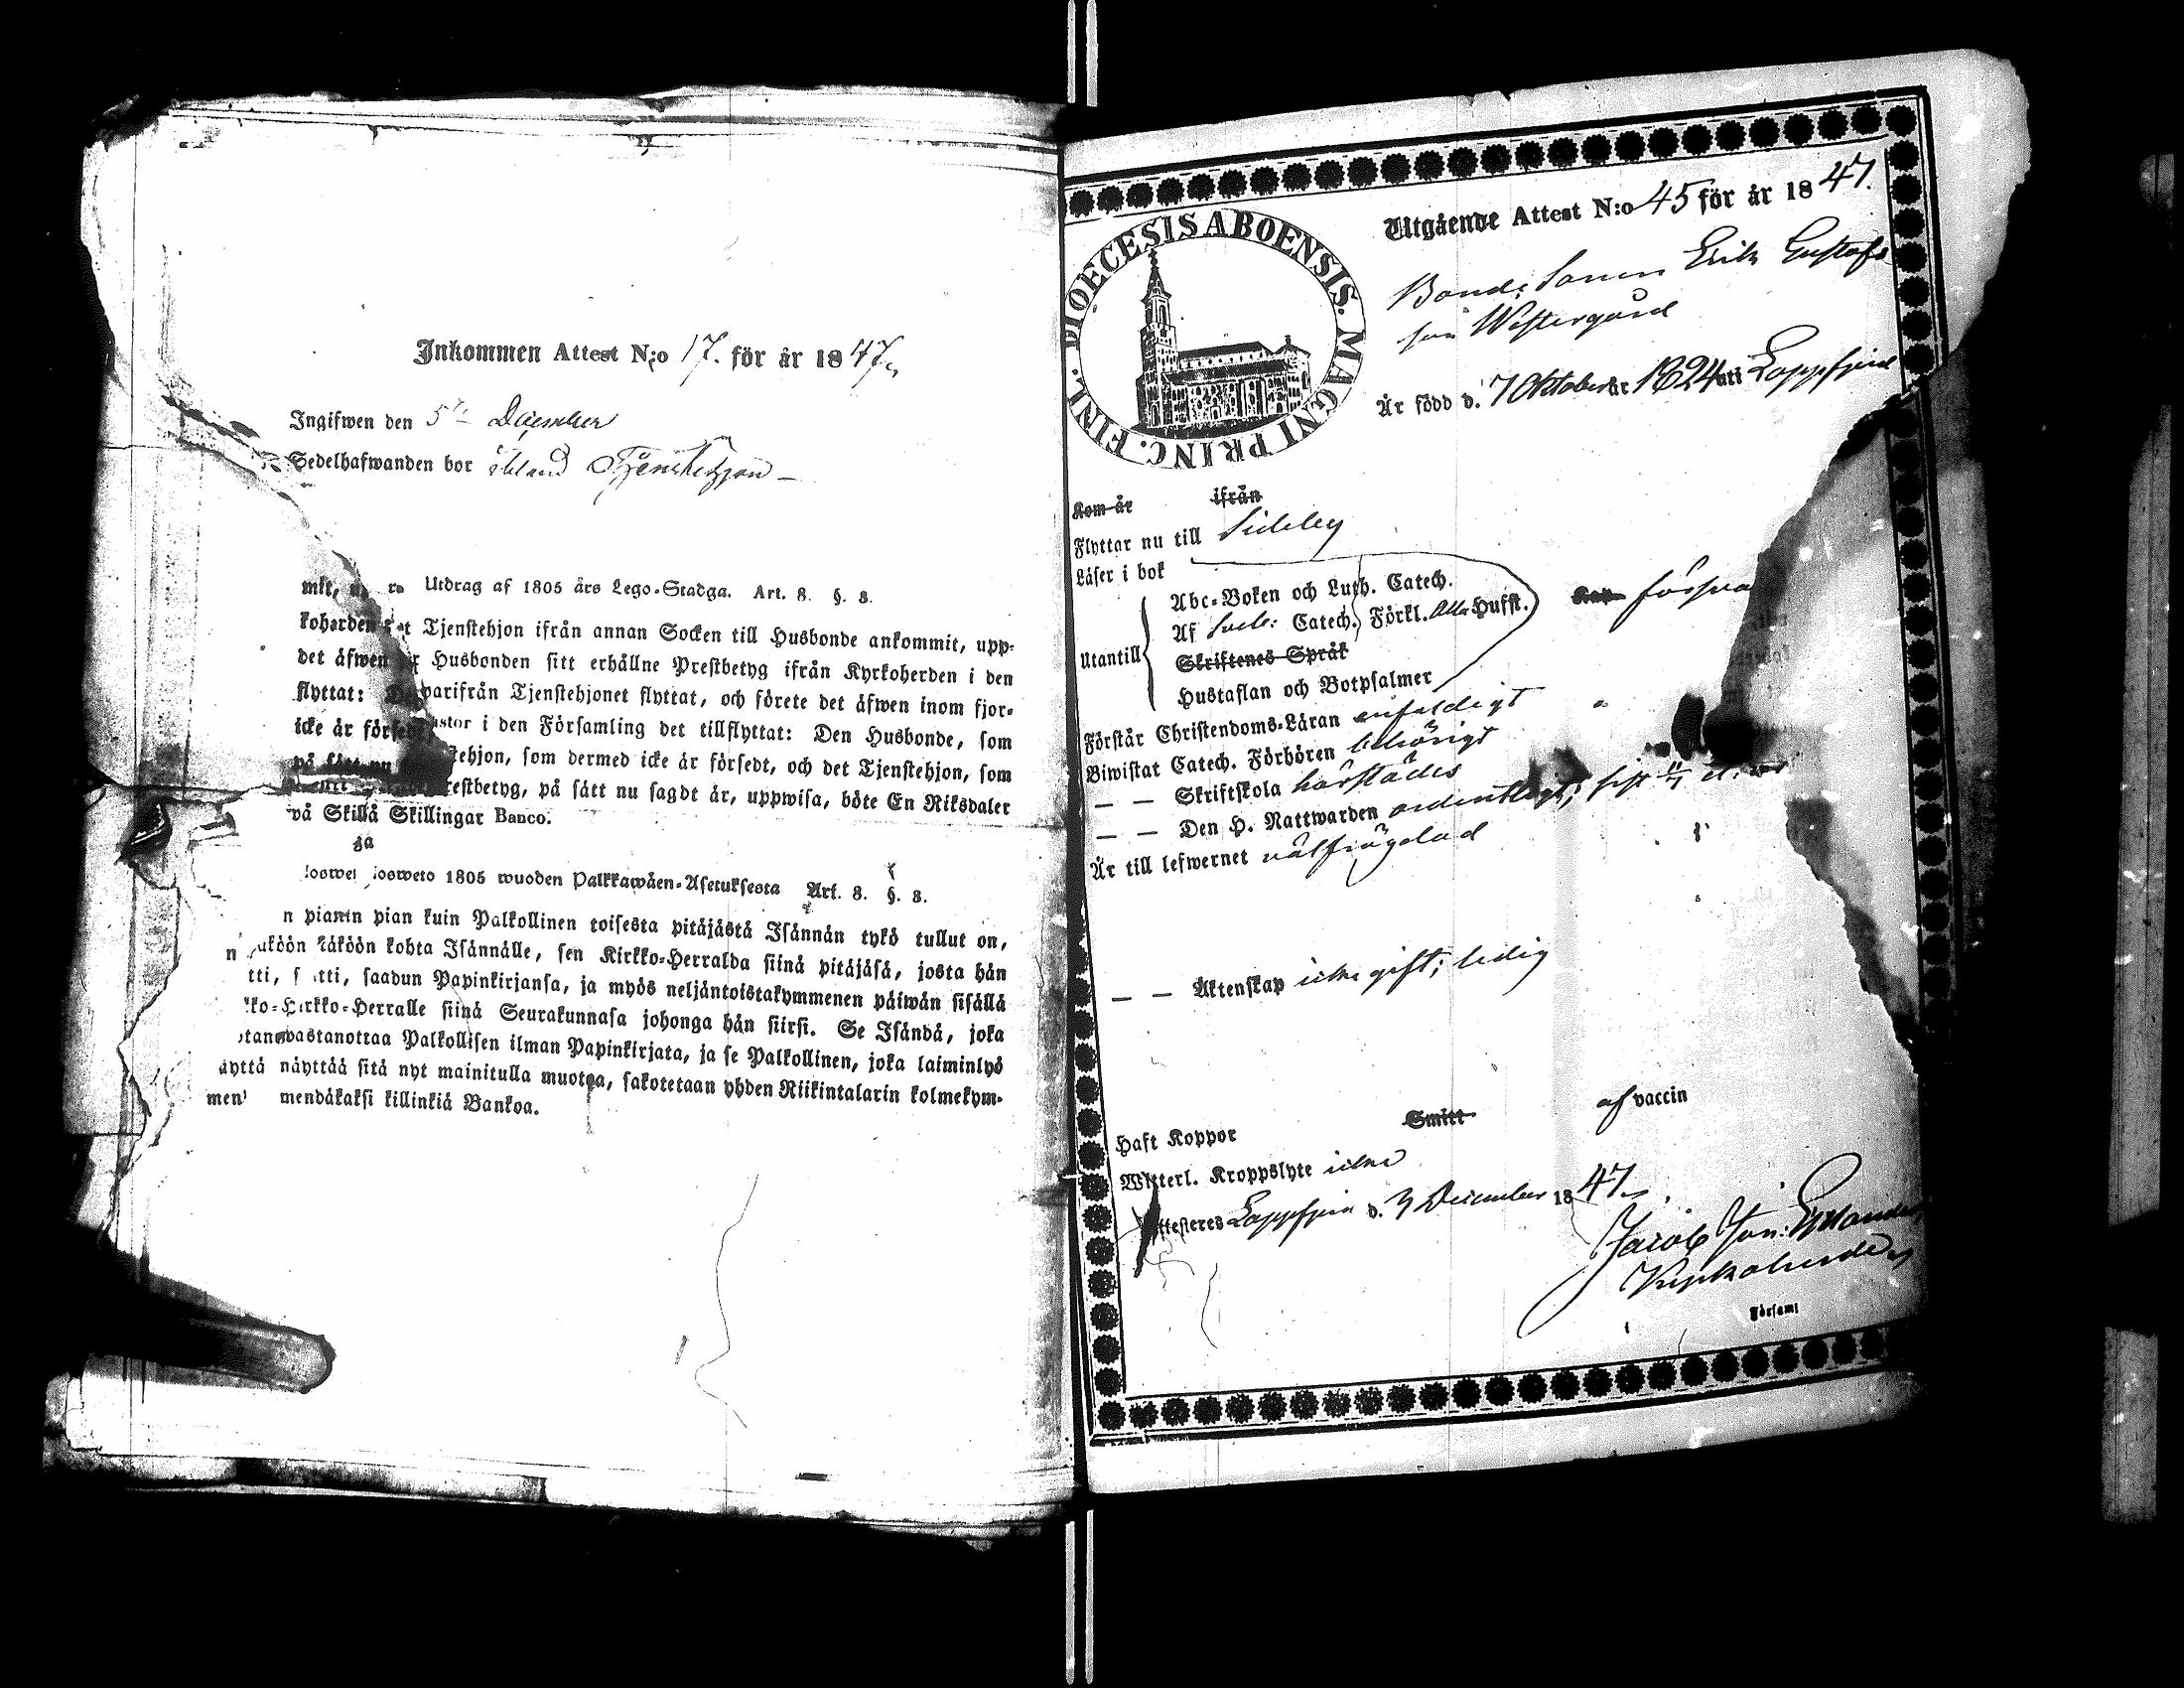 Inkommen Attest N:o 17. för år 1847.
Ingifwen den 5te December
Sedelhafwanden bor ibland Tjenstehjon
Utdrag af 1805 års Lego-Stadga. Art. 8. §. 8.
Tjenstehjon ifrån annan Socken till Husbonde ankommit, upp-
Husbonden sitt erhållne Prestbetyg ifrån Kyrkoherden i den
parifrån Tjenstehjonet flyttat, och förete det äfwen inom fjor-
astor i den Församling det tillflyttat: Den Husbonde, som
stehjon, som dermed icke är försedt, och det Tjenstehjon, som
restbetyg, på sätt nu sagdt är, uppwisa, böte En Riksdaler
vå Skillingar Banco.
josweto 1805 wuoden Palkkawäen-Asetuksesta Art. 8. §. 8.
n pian kuin Palkollinen toisesta pitäjästä Isännän tykö tullut on,
äköön kohta Isännälle, sen Kirkko-Herralda siinä pitäjäsä, josta hän
tti, saadun Papinkirjansa, ja myös neljäntoistakymmenen päiwän sisällä
rkko-Herralle siinä Seurakunnasa johonga hän siirsi. Se Isändä, joka
wastanottaa Palkollisen ilman Papinkirjata, ja se Palkollinen, joka laiminlyö
näyttää sitä nyt mainitulla muotoa, sakotetaan yhden Riikintalarin kolmekym-
mendäkaksi killinkiä Bankoa.
DIOECESIS ABOENSIS. MAGNI PRINC. FINL.
Utgående Attest N:o 45 för år 1847.
Bonde Sonen Erik Gustafs
son Westergård
Är född d. 7 Oktober år 1824 uti Lappfjerd
Kom år ifrån
Flyttar nu till Sideby
Läser i bok
Abc-Boken och Luth. Catech.
Af Sveb: Catech. Förkl. Alla Hufst.
Utantill
Skriftenes Språk
Hustaflan och Botpsalmer
Förstår Christendoms-Läran enfaldigt
Biwistat Catech. Förhören behörigt
— — Skriftskola härstädes
— — Den H. Nattwarden ordentligt; sist
Är till lefwernet välfrägdad
— — Äktenskap icke gift; ledig
Haft Koppor Smitt af vaccin
Witterl. Kroppslyte icke
Attesteres Lappfjerd d. 3 December 1847.
Jacob Jon:
Kyrkoherde
Församl